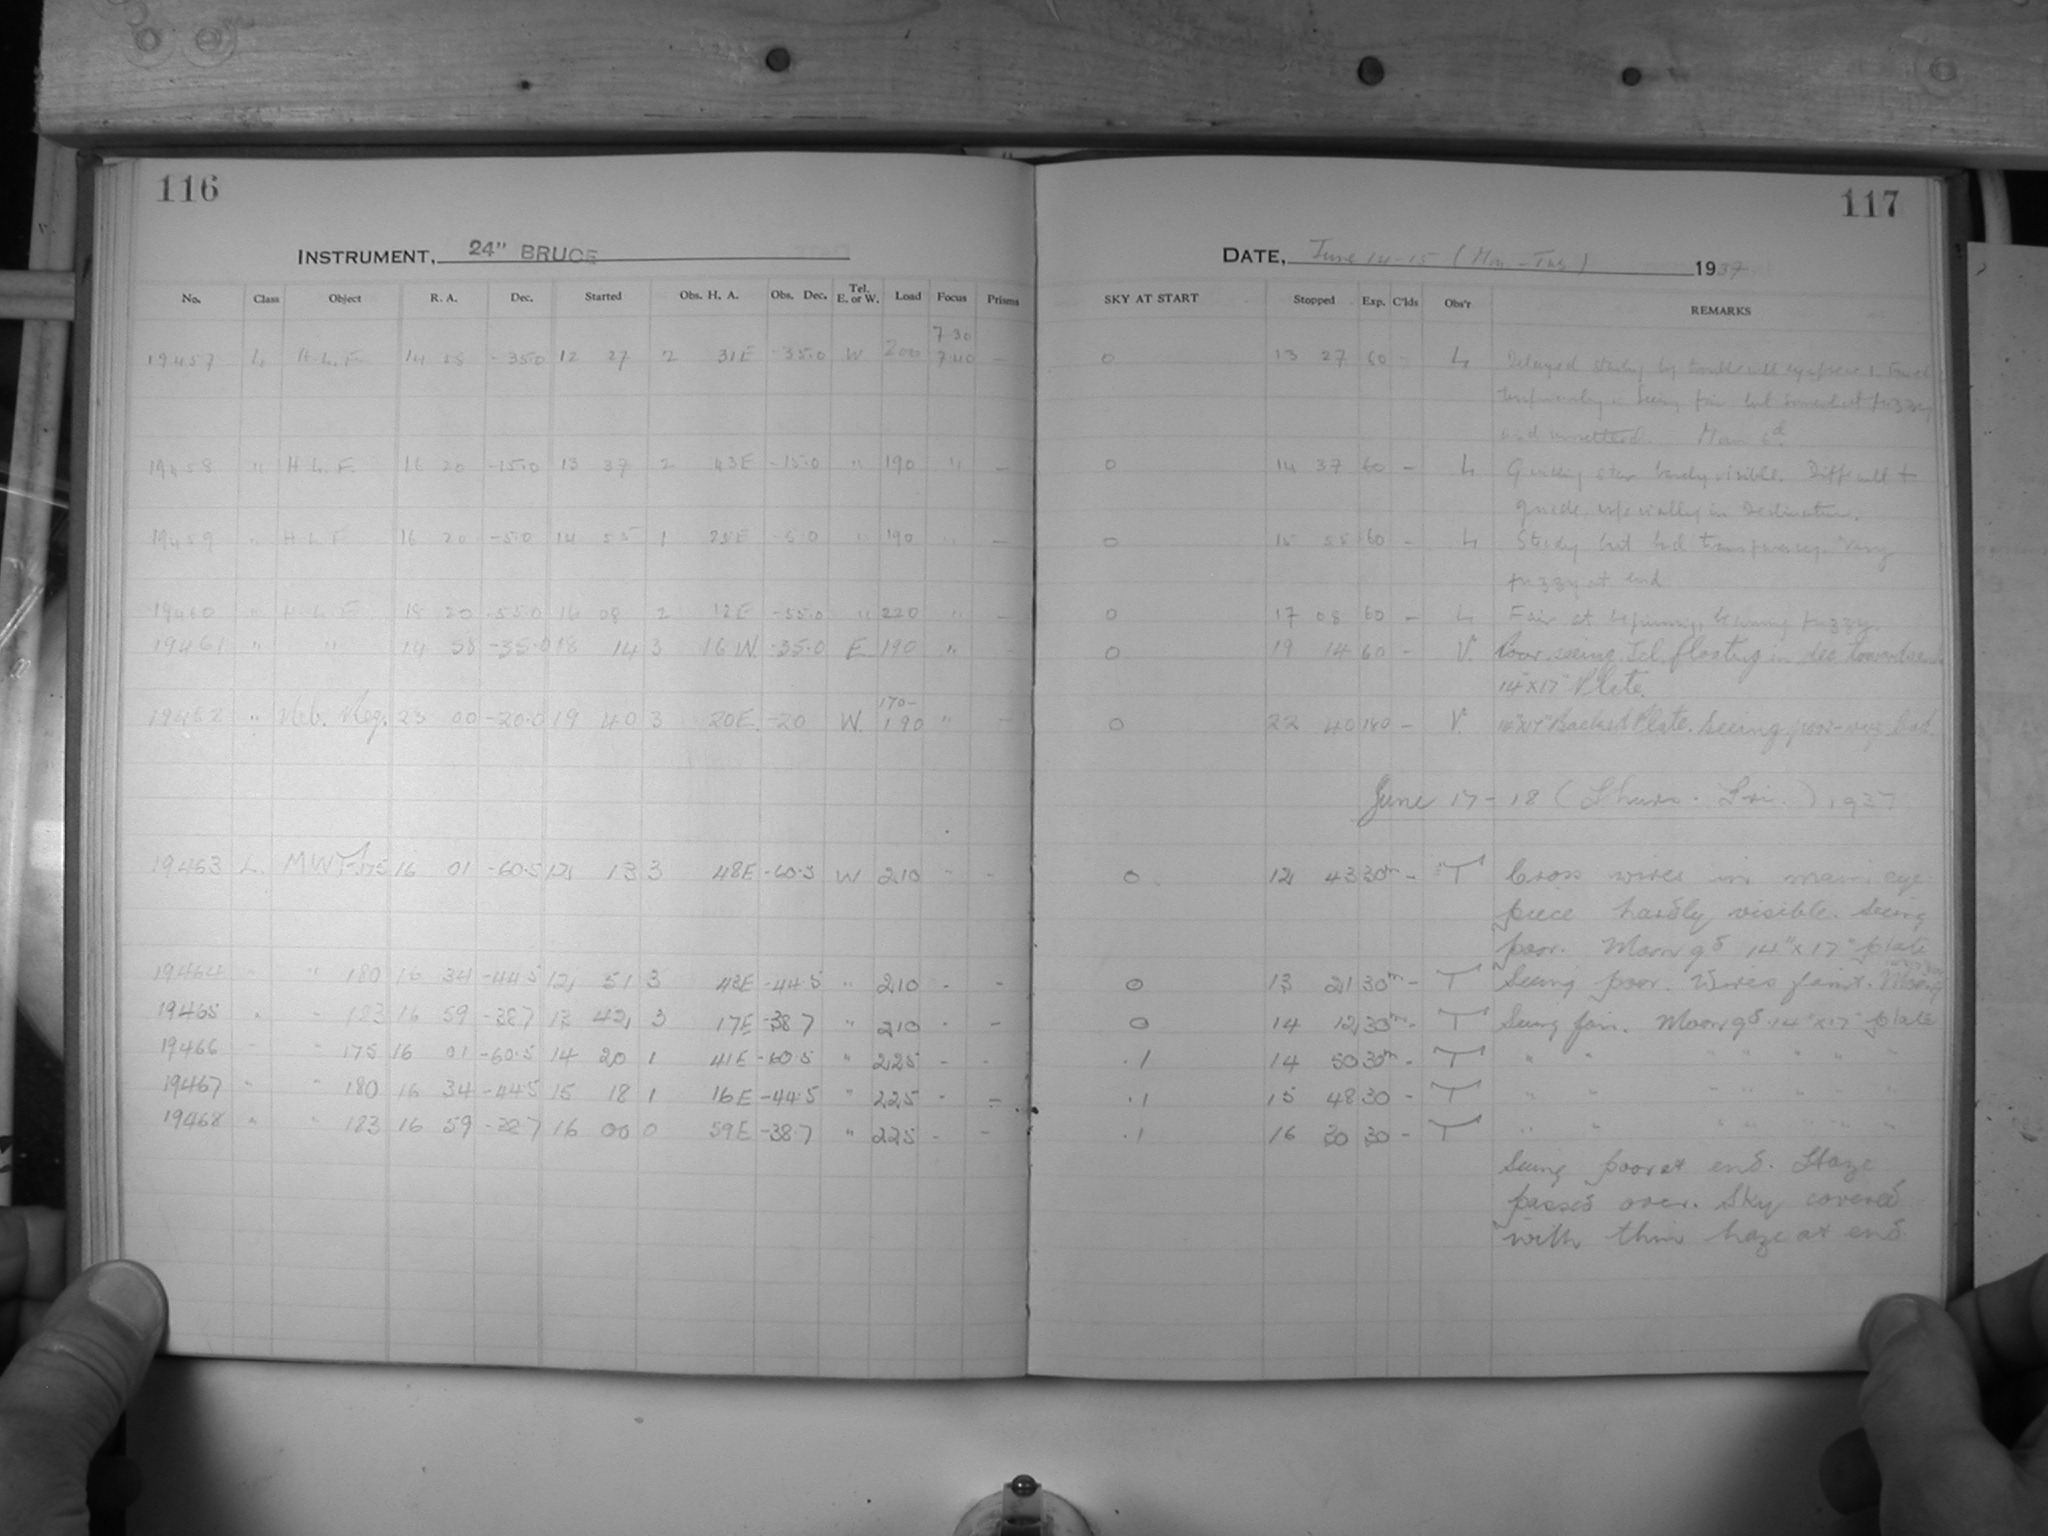 116
117
INSTRUMENT, 24" BRUCE
DATE, June 14-15 (Mon - Tues) 1937
No. Class Object R. A. Dec. Started Obs. H. A. Obs. Dec. Tel. E. or W. Load Focus Prisms SKY AT START Stopped Exp. C'lds Obs'r REMARKS
7 30
19457 L H.L.F. 14 58 -35.0 12 27 2 31E -35.0 W 200 7.40 - 0 13 27 60 - L Delayed by trouble with eyepiece
temporarily Seeing fair but somewhat fuzzy
and unsettled. Moon 6d
19458 " H.L.F. 16 20 -15.0 13 37 2 43E -15.0 " 190 " - 0 14 37 60 - L Guiding star barely visible. Difficult to
guide, especially in Declination.
19459 " H.L.F. 16 20 -5.0 14 55 1 25E -5.0 " 190 " - 0 15 55 60 - L Steady but bad transparency. Very
fuzzy at end
19460 " H.L.F. 18 20 -55.0 16 08 2 12E -55.0 " 220 " - 0 17 08 60 - L Fair at beginning, becoming fuzzy.
19461 " " 14 58 -35.0 18 14 3 16 W. -35.0 E 190 " - 0 19 14 60 - V. Poor seeing. Tel. floating in dec towards end.
14"x17" Plate.
170-
19462 " Neb. Reg. 23 00 -20.0 19 40 3 20E. -20 W. 190 " - 0 22 40 180 - V. 14"x17" Backed Plate. Seeing poor - very bad.
June 17-18 (Thurs. - Fri.) 1937
19463 L. MWF-175 16 01 -60.5 12 13 3 48E -60.5 W 210 " - 0 12 43 30m - "T" Cross wires in main eye-
piece hardly visible. Seeing
poor. Moon 9d 14"x17" plate
19464 " " 180 16 34 -44.5 12 51 3 43E -44.5 " 210 - - 0 13 21 30m - T Seeing poor. Wires faint.
19465 " " 183 16 59 -38.7 13 42 3 17E -38.7 " 210 - - 0 14 12 30m - T Seeing fair. Moon 9d 14"x17" plate
19466 " " 175 16 01 -60.5 14 20 1 41E -60.5 " 225 - - .1 14 50 30m - T " " " " " " "
19467 " " 180 16 34 -44.5 15 18 1 16E -44.5 " 225 - - .1 15 48 30 - T " " " " " " "
19468 " " 183 16 59 -38.7 16 00 0 59E -38.7 " 225 - - .1 16 30 30 - T " " " " " " "
Seeing poor at end. Haze
passed over. Sky covered
with thin haze at end